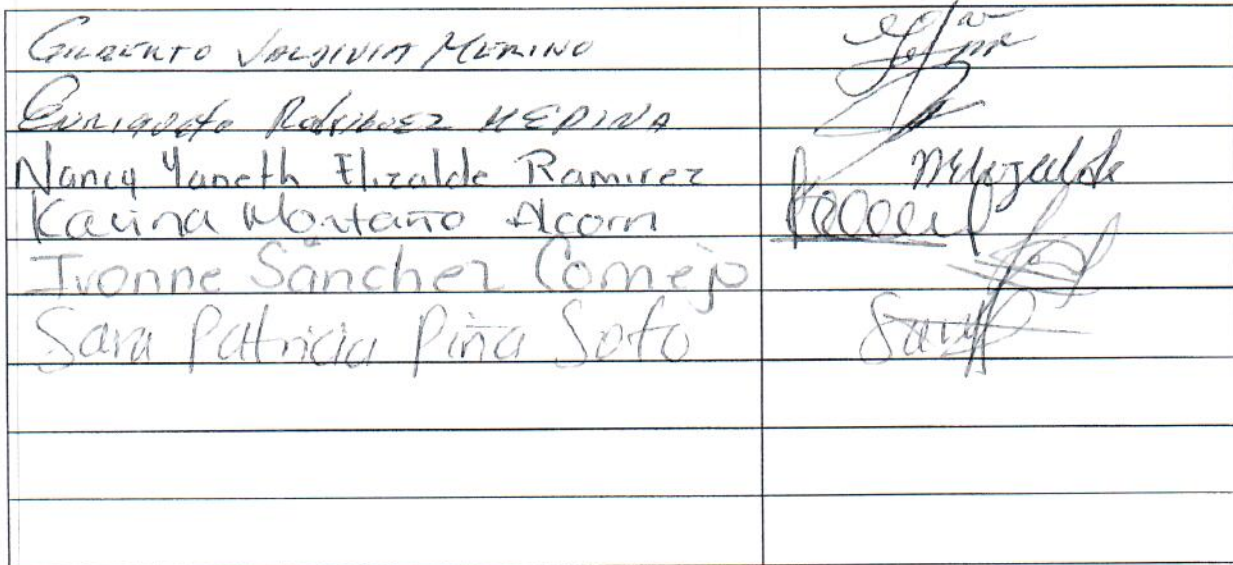 GILBERTO VALDIVIA MERINO
RODRIGUEZ MEDINA
Nancy Yaneth Elizalde Ramirez
Karina Montaño Alcorn
Ivonne Sánchez Cornejo
Sara Patricia Piña Soto Sara